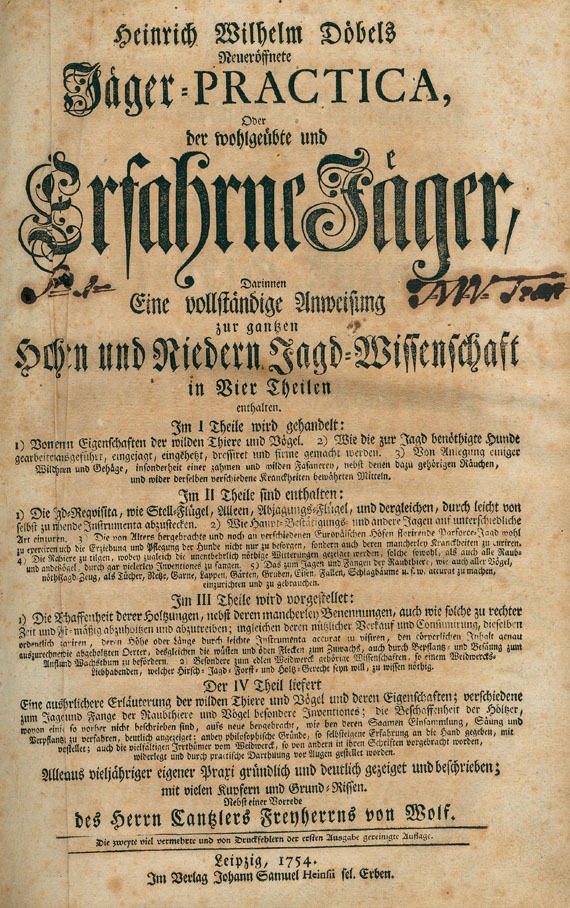 Heinrich Wilhelm Döbels
Neueröffnete
Jäger-PRACTICA,
Oder
der wohlgeübte und
Erfahrne Jäger,
Darinnen
Eine vollständige Anweisung
zur gantzen
Hohen und Niedern Jagd-Wissenschaft
in Vier Theilen
enthalten.
Im I Theile wird gehandelt:
1) Von Eigenschaften der wilden Thiere und Vögel. 2) Wie die zur Jagd benöthigte Hunde
gearbeitet, ausgeführt, eingejagt, eingehetzt, dressiret und firme gemacht werden. 3) Von Anlegung einiger
Wildbahnen und Gehäge, insonderheit einer zahmen und wilden Fasanerey, nebst denen dazu gehörigen Räuchen,
und wider derselben verschiedene Kranckheiten bewährten Mitteln.
Im II Theile sind enthalten:
1) Die Jagd-Reqvisita, wie Stell-Flügel, Alleen, Abjagungs-Flügel, und dergleichen, durch leicht von
selbst zu machende Instrumenta abzustecken. 2) Wie Haupt- Bestätigungs- und andere Jagen auf unterschiedliche
Art einzurichten. 3) Die von Alters hergebrachte und noch an verschiedenen Europäischen Höfen florirende Parforce-Jagd wohl
zu exerciren, auch die Erziehung und Pflegung der Hunde nicht nur zu besorgen, sondern auch deren mancherley Kranckheiten zu curiren.
4) Die Raubthiere zu tilgen, wobey zugleich die unentbehrlich nöthige Witterungen gezeiget werden, solche sowohl, als auch alle Raub-
und andere Vögel, durch gar vielerley Inventiones zu fangen. 5) Das zum Jagen und Fangen der Raubthiere, wie auch aller Vögel,
nöthige Jagd-Zeug, als Tücher, Netze, Garne, Lappen, Gärten, Gruben, Eisen, Fallen, Schlagbäume u. s. w. accurat zu machen,
einzurichten und zu gebrauchen.
Im III Theile wird vorgestellet:
1) Die Beschaffenheit derer Holtzungen, nebst deren mancherley Benennungen, auch wie solche zu rechter
Zeit und forst-mäßig abzuholtzen und abzutreiben; ingleichen deren nützlicher Verkauf und Consumirung, dieselben
ordentlich zu taxiren, deren Höhe oder Länge durch leichte Instrumenta accurat zu visiren, den cörperlichen Inhalt genau
auszurechnen, die abgeholtzten Oerter, desgleichen die wüsten und öden Flecken zum Zuwachs, auch durch Bepflantz- und Besäung zum
Anflug und Wachsthum zu befördern. 2) Besondere zum edlen Weidwerck gehörige Wissenschaften, so einem Weidwercks-
Liebhabenden, welcher Hirsch- Jagd- Forst- und Holtz-Gerecht seyn will, zu wissen nöthig.
Der IV Theil liefert
Eine ausführlichere Erläuterung der wilden Thiere und Vögel und deren Eigenschaften; verschiedene
zum Jagen und Fange der Raubthiere und Vögel besondere Inventiones; die Beschaffenheit der Höltzer,
wovon einige so vorher nicht beschrieben sind, aufs neue beygebracht, wie bey deren Saamen Einsammlung, Säung und
Verpflantzung zu verfahren, deutlich angezeiget; anbey philosophische Gründe, so selbsteigene Erfahrung an die Hand gegeben, mit
vorgestellet; auch die vielfältigen Irrthümer vom Weidwerck, so von andern in ihren Schriften vorgebracht worden,
widerlegt und durch practische Darthuung vor Augen gestellet worden.
Alles aus vieljähriger eigener Praxi gründlich und deutlich gezeiget und beschrieben;
mit vielen Kupfern und Grund-Rissen.
Nebst einer Vorrede
des Herrn Cantzlers Freyherrns von Wolf.
Die zweyte viel vermehrte und von Druckfehlern der ersten Ausgabe gereinigte Auflage.
Leipzig, 1754.
Im Verlag Johann Samuel Heinsii sel. Erben.